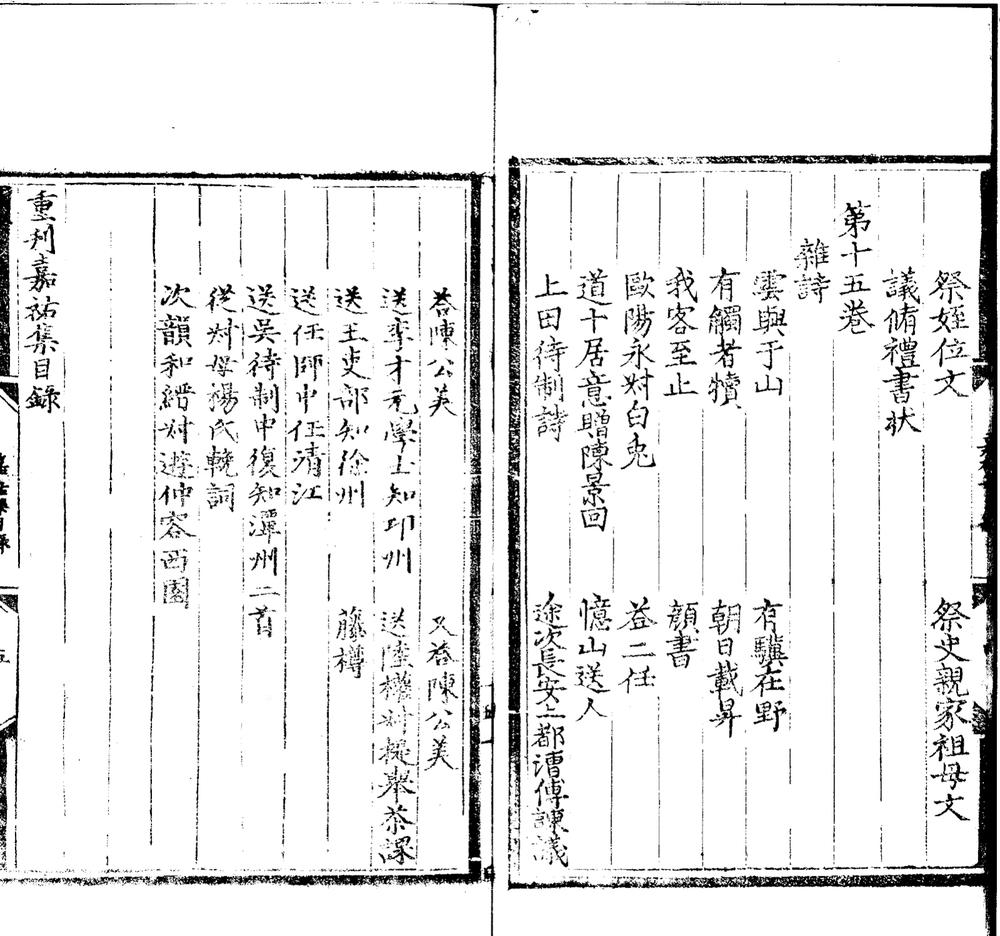 祭姪位文　祭史親家祖母文
議脩禮書狀
第十五巻
雜詩
雲興于山　有驥在野
有觸者犢　朝日載昇
我客至止　顔書
歐陽永叔白兎　荅二任
道卜居意贈陳景回　憶山送人
上田待制詩　途次長安上都漕傅諫議
荅陳公美　又荅陳公美
送李才元學士知邛州　送陸權叔提舉茶課
送王吏部知徐州　藤樽
送任師中任清江
送吳待制中復知潭州二首
從叔母楊氏輓詞
次韻和縉叔遊仲容西園
重刋嘉祐集目錄